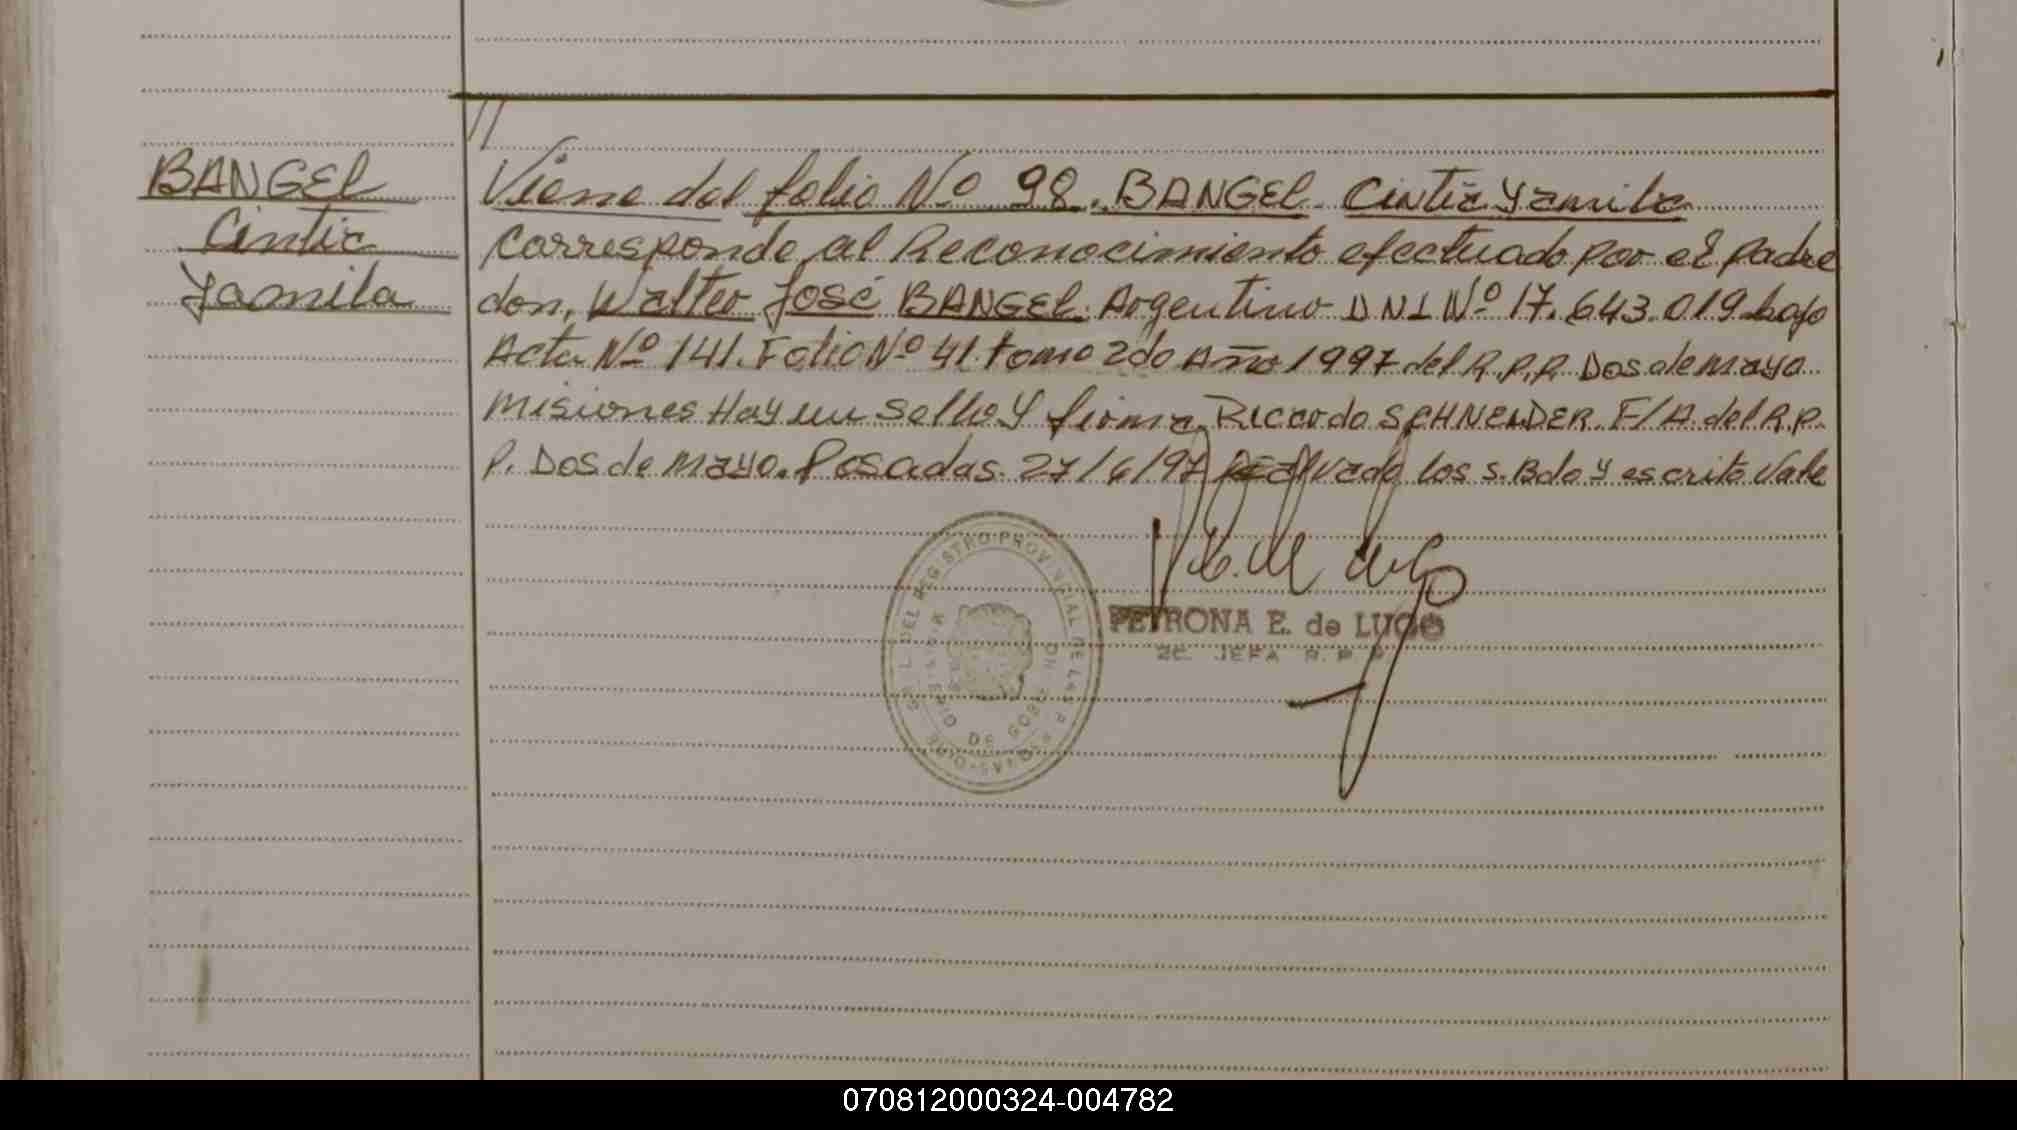 BANGEL
Cintia
Yamila
Viene del folio Nº 98. BANGEL Cintia Yamila
Corresponde al Reconocimiento efectuado por el padre
don, Walter José BANGEL. Argentino DNI Nº 17.643.019 bajo
Acta Nº 141. Folio Nº 41. tomo 2do Año 1997 del R.P.P. Dos de Mayo
Misiones Hay un sello y firma. Riccardo SCHNEIDER. F/A. del R.P.
P. Dos de Mayo. Posadas. 27/6/97 los s. Bdo y escrito Vale
PETRONA E. de LUGO
JEFA R. P. P.
DEL REGISTRO PROVINCIAL DE LAS P
DE GOB
070812000324-004782